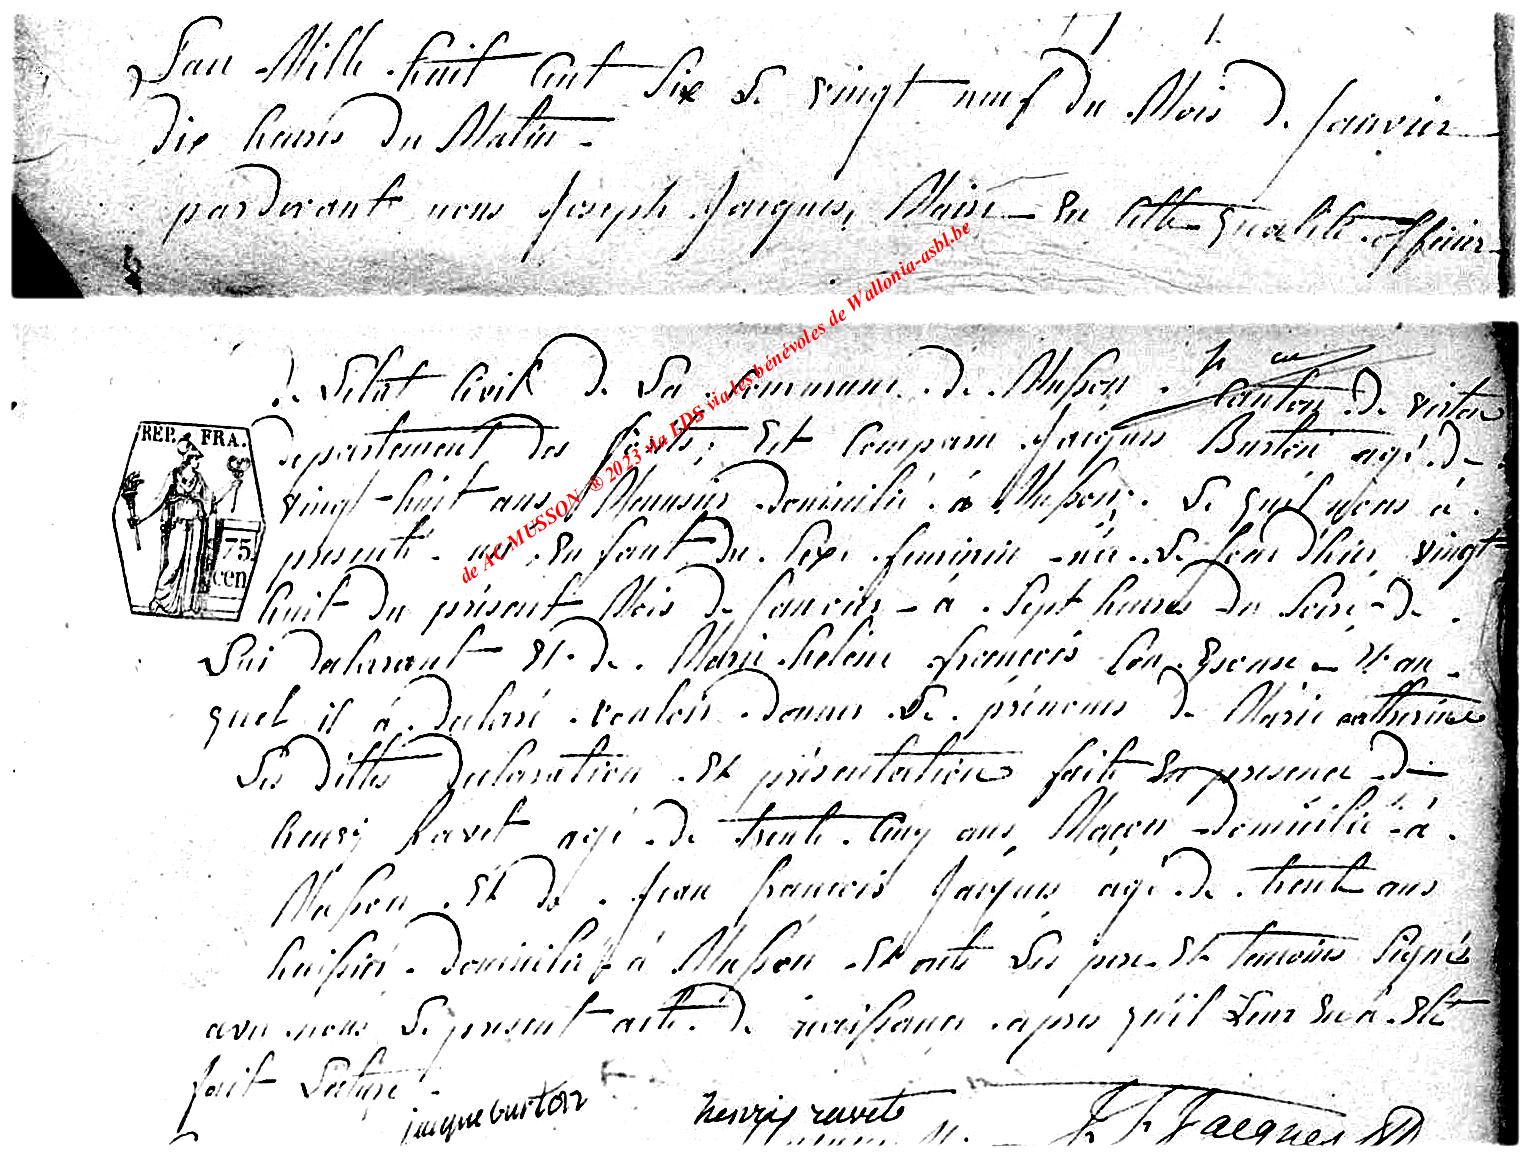 L'an Mille huit Cent Six Le vingt neuf du Mois de Janvier
dix heures du Matin -
pardevant nous Joseph Jacques, Maire en cette qualité officier
de L'état Civil de La Commune de Musson, Canton de virton
departement des forêts, Est Comparu Jacques Burton agé de
vingt-huit ans Menusier domicilié à Musson, Le quel nous à
presenté un Enfant du Sexe feminin née Le Jour d'hier vingt
huit du présent Mois de Janvier à Sept heures du Soire de
Lui declarant Et de Marie helene francois Son Epouse Et au
quel il à declaré vouloir donner Le prénoms de Marie catherine
Les dittes declaration Et présentation faite En presence de
henry Ravet agé de trente Cinq ans, Maçon domicilié à
Musson Et de Jean francois Jacques agé de trente ans
huissié domicilié à Musson Et onts Les pere Et temoins Signés
avec nous Le present acte de naissance apres qu'il Leur En à Eté
fait Lecture
jacque burton henry ravet J F Jacques
REP. FRA.
75
cen
de AC MUSSON ® 2023 via LDS via les bénévoles de Wallonia-asbl.be